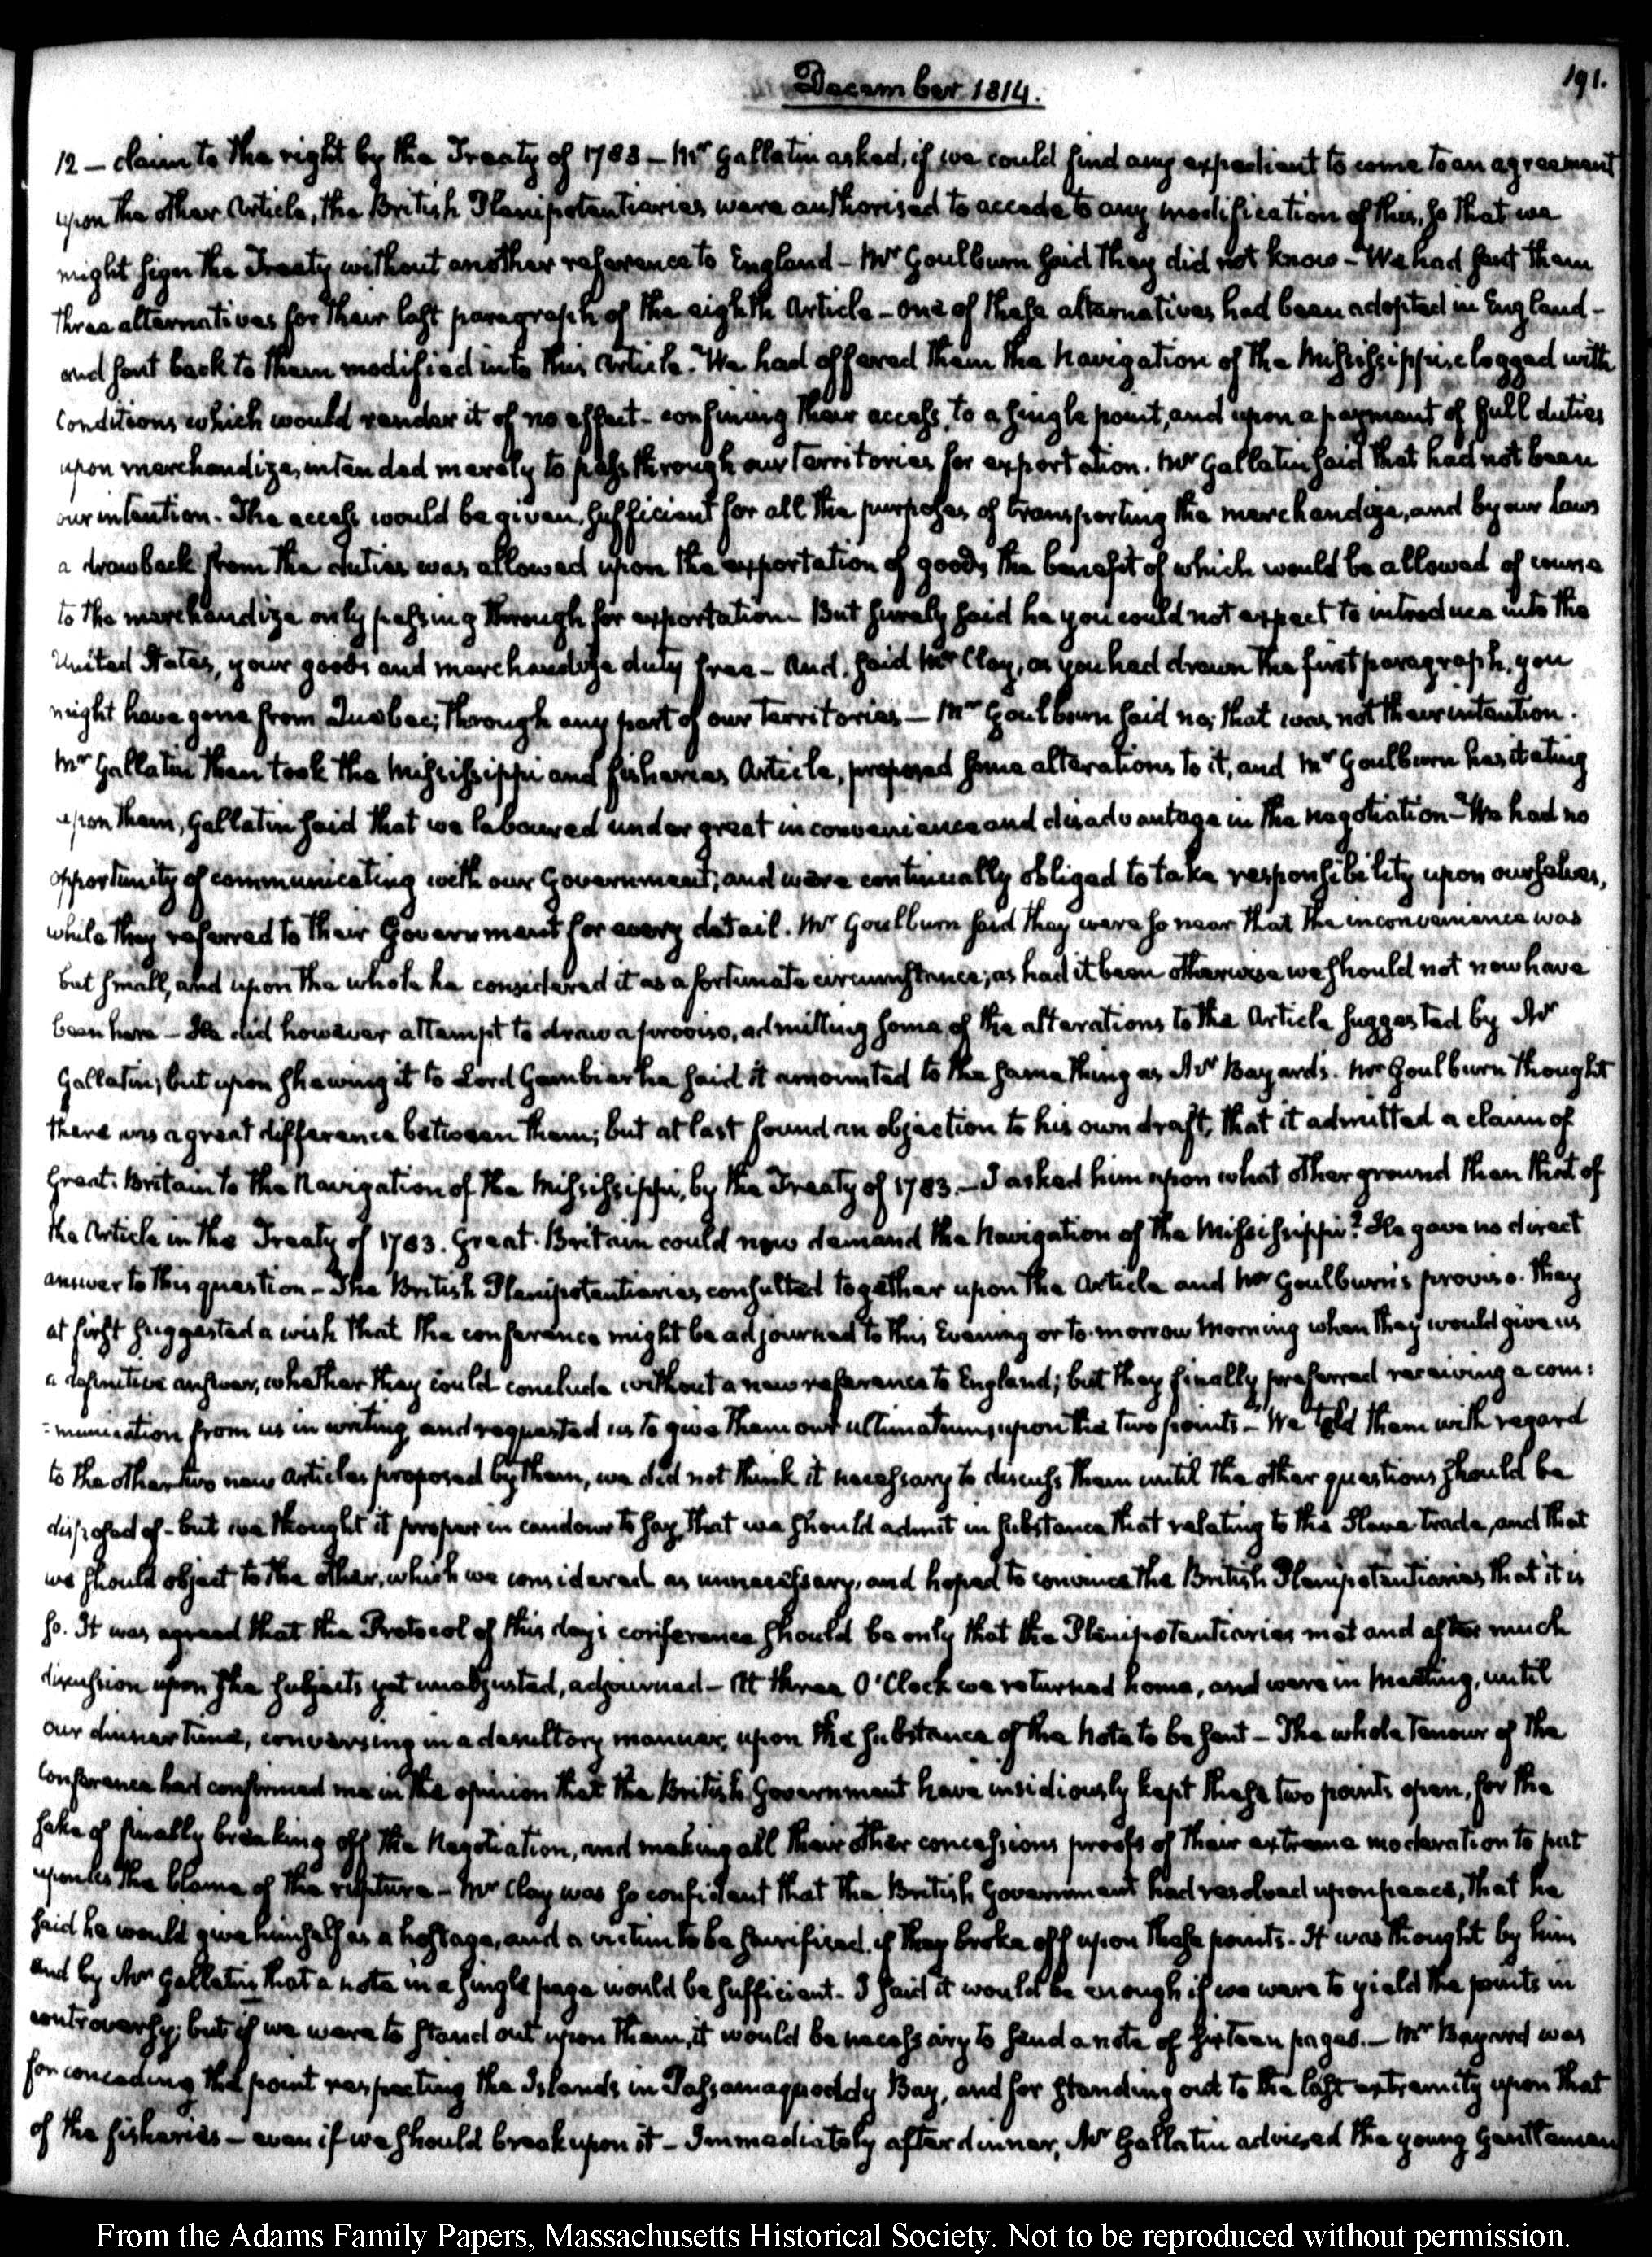 December 1814.
191.
12 — claim to the right by the Treaty of 1783 — Mr Gallatin asked, if we could find any expedient to come to an agreement
upon the other Article, the British Plenipotentiaries were authorised to accede to any modification of this, so that we
might sign the Treaty without another reference to England — Mr Goulburn said they did not know — We had sent them
three alternatives for their last paragraph of the eighth Article — one of these alternatives had been adopted in England —
and sent back to them modified into this Article. We had offered them the Navigation of the Mississippi, clogged with
conditions which would render it of no effect — confining their access, to a single point, and upon a payment of full duties
upon merchandize, intended merely to pass through our Territories for exportation. Mr Gallatin said that had not been
our intention. The access would be given, sufficient for all the purposes of transporting the merchandize, and by our Laws
a drawback from the duties was allowed upon the exportation of goods the benefit of which would be allowed of course
to the merchandize only passing through for exportation — But surely said he you could not expect to introduce into the
United States, your goods and merchandise duty free — And, said Mr Clay, as you had drawn the first paragraph, you
might have gone from Quebec, through any part of our Territories — Mr Goulburn said no, that was not their intention.
Mr Gallatin then took the Mississippi and fisheries Article, proposed some alterations to it, and Mr Goulburn hesitating
upon them, Gallatin said that we laboured under great inconvenience and disadvantage in the negotiation — We had no
opportunity of communicating with our Government, and were continually obliged to take responsibility upon ourselves,
while they referred to their Government for every detail. Mr Goulburn said they were so near that the inconvenience was
but small, and upon the whole he considered it as a fortunate circumstance; as had it been otherwise we should not now have
been here — He did however attempt to draw a proviso, admitting some of the alterations to the Article suggested by Mr
Gallatin; but upon shewing it to Lord Gambier he said it amounted to the same thing as Mr Bayard's. Mr Goulburn thought
there was a great difference between them; but at last found an objection to his own draft, that it admitted a claim of
Great-Britain to the Navigation of the Mississippi, by the Treaty of 1783. — I asked him upon what other ground than that of
the Article in the Treaty of 1783. Great-Britain could now demand the Navigation of the Mississippi? He gave no direct
answer to this question — The British Plenipotentiaries consulted together upon the Article and Mr Goulburn's proviso. They
at first suggested a wish that the conference might be adjourned to this Evening or to-morrow Morning when they would give us
a definitive answer, whether they could conclude without a new reference to England; but they finally preferred receiving a com:
:munication from us in writing, and requested us to give them our ultimatum, upon the two points — We told them with regard
to the other two new Articles proposed by them, we did not think it necessary to discuss them until the other questions should be
disposed of — but we thought it proper in candour to say that we should admit in substance that relating to the Slave trade, and that
we should object to the other, which we considered as unnecessary, and hoped to convince the British Plenipotentiaries that it is
so. It was agreed that the Protocol of this day's conference should be only that the Plenipotentiaries met and after much
discussion upon the subjects yet unadjusted, adjourned — At three O'Clock we returned home, and were in Meeting, until
our dinner time, conversing in a desultory manner, upon the substance of the Note to be sent — The whole Tenour of the
Conference had confirmed me in the opinion that the British Government have insidiously kept these two points open, for the
sake of finally breaking off the Negotiation, and making all their other concessions proofs of their extreme moderation to put
upon us the blame of the rupture — Mr Clay was so confident that the British Government had resolved upon peace, that he
said he would give himself as a hostage, and a victim to be sacrificed, if they broke off upon these points. It was thought by him
and by Mr Gallatin that a note in a single page would be sufficient. I said it would be enough if we were to yield the points in
controversy; but if we were to stand out upon them, it would be necessary to send a note of sixteen pages. — Mr Bayard was
for conceding the point respecting the Islands in Passamaquoddy Bay, and for standing out to the last extremity upon that
of the fisheries — even if we should break upon it — Immediately after dinner, Mr Gallatin advised the young Gentlemen
From the Adams Family Papers, Massachusetts Historical Society. Not to be reproduced without permission.